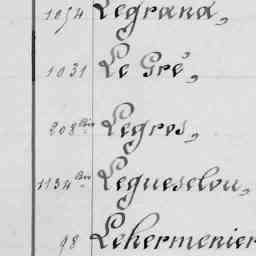 1054 Legrand,
1031 Le Gré,
208 bis Legros,
1134 bis Leguesclou,
98 Lehermenier